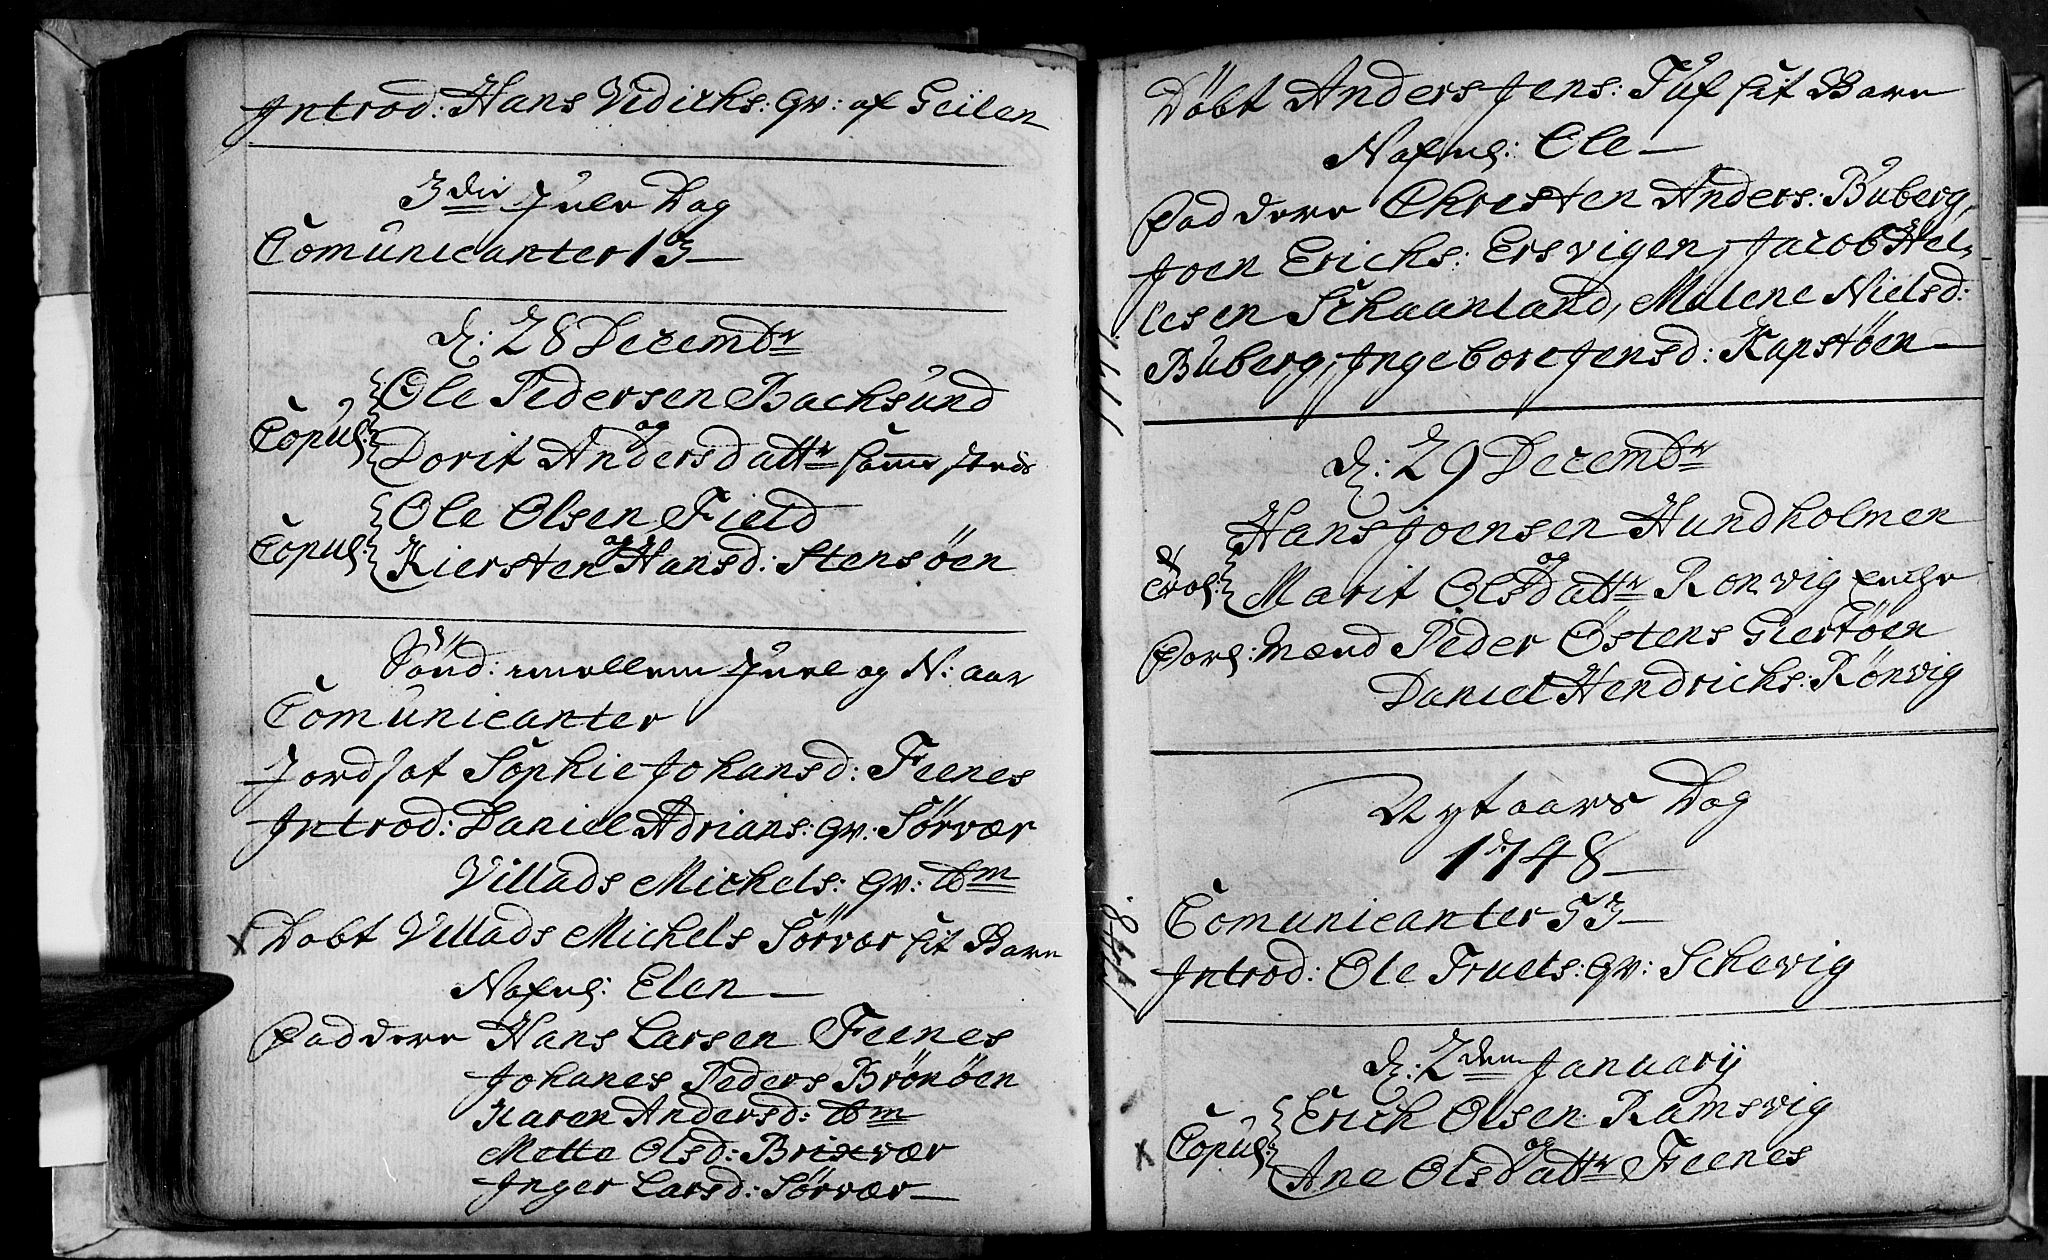 Introd: Hans Vidichs: Qv: af Geilen
3die Jule Dag
Comunicanter 13
d: 28 Decembr
Copul: Ole Pedersen Bachsund
og
Dorit Andersdattr samme steds
Copul: Ole Olsen Field
og
Kiersten Hansd: Stensøen
Sønd: imellem Juel og N: aar
Comunicanter
Jordsat Sophie Johansd: Feenes
Introd: Daniel Adrians: Qv: Sørvær
Villads Michels: Qv: ibm
x Døbt Villads Michels Sørvær sit Barn
Nafnl: Elen
Faddere Hans Larsen Feenes
Johanes Peders Brønøen
Karen Andersd: ibm
Mette Olsd: Brixvær
Inger Larsd: Sørvær
Døbt Anders Jens: Tuf sit Barn
Nafnl: Ole
Faddere Christen Anders: Buberg,
Joen Erichs: Ersvigen, Jacob Hel,
lesen Schaanland, Malene Nielsd:
Buberg, Ingebore Jensd: Kapstøen
1747.
d: 29 Decembr
Hans Joensen Hundholmen
og
Trol: Marit Olsdattr Ronvig Enche
Forl: Mænd Peder Østens Giertøen
Daniel Hendrichs: Rønvig
Nytaars Dag
1748
1748.
Comunicanter 53
Introd: Ole Truels: Qv: Schevig
d: 2den January
Erich Olsen Ramsvig
x Copul: og
Ane Olsdattr Feenes